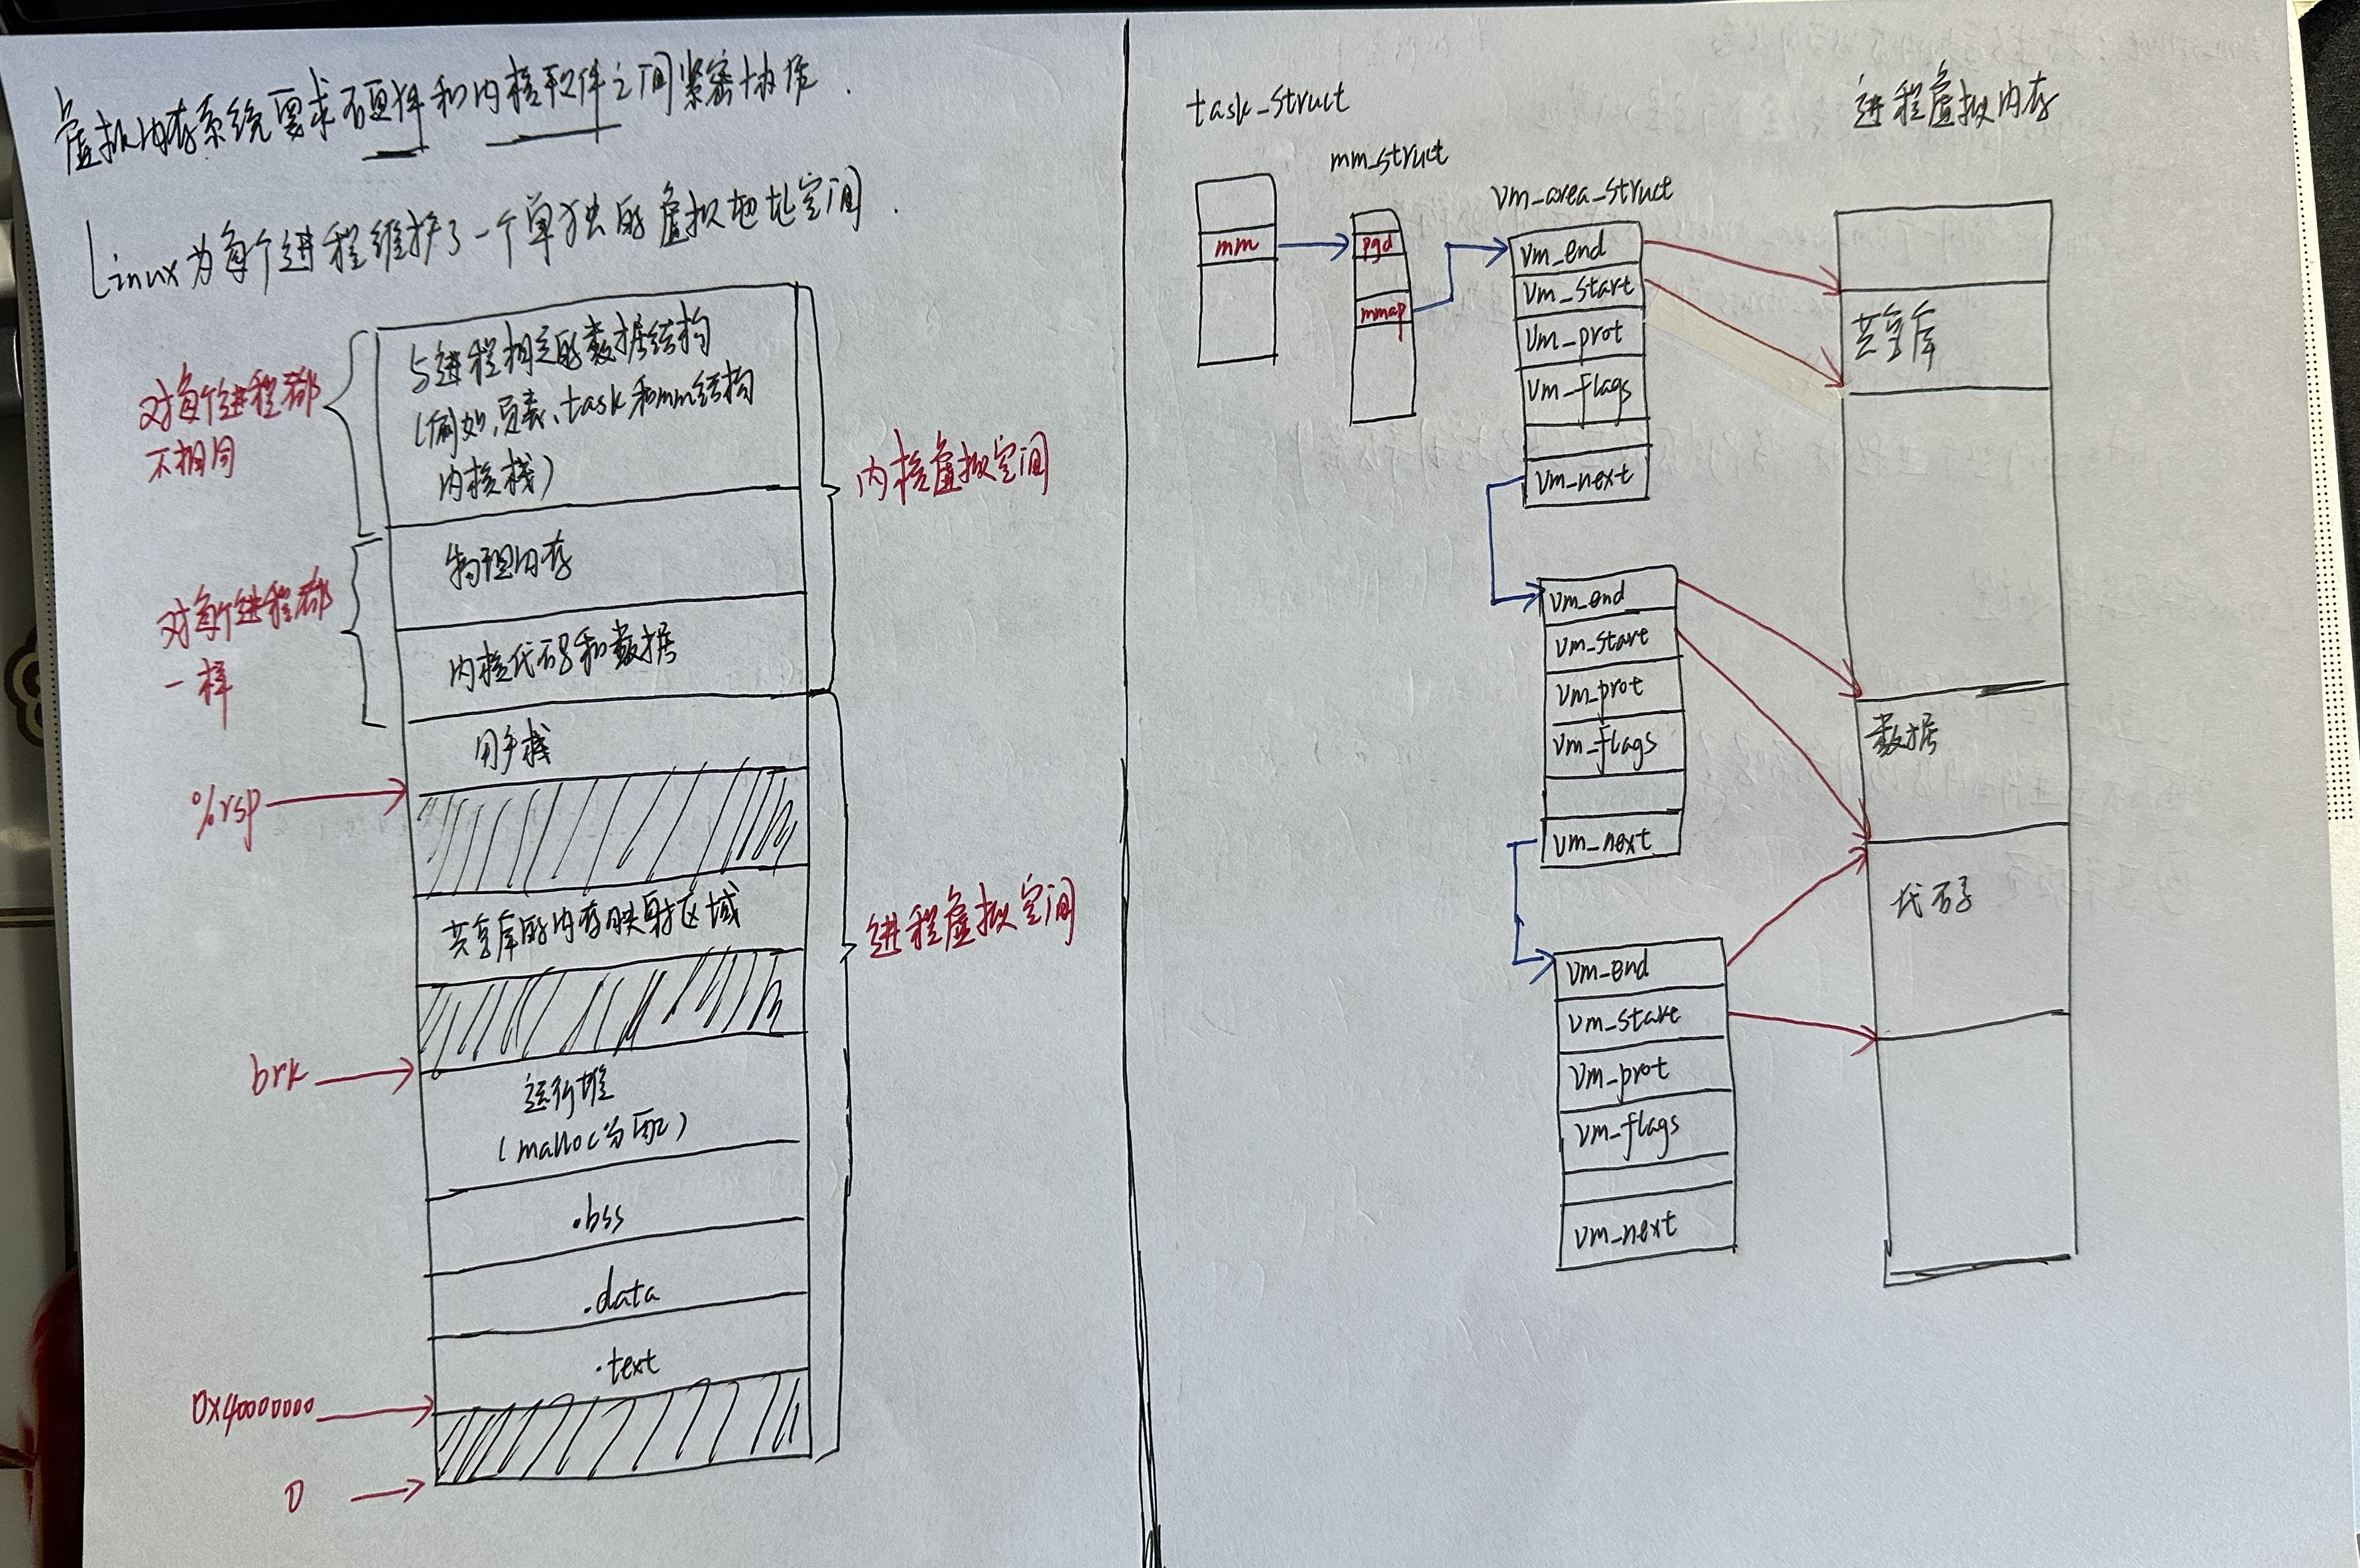 虚拟内存系统要求硬件和内核软件之间紧密协作.
Linux为每个进程维护了一个单独的虚拟地址空间.
对每个进程都
不相同
与进程相关的数据结构
(例如,页表、task和mm结构
内核栈)
内核虚拟空间
对每个进程都
一样
物理内存
内核代码和数据
用户栈
%rsp
共享库的内存映射区域
进程虚拟空间
brk
运行堆
(malloc分配)
.bss
.data
.text
0x40000000
0
task_struct
mm
mm_struct
pgd
mmap
vm_area_struct
vm_end
vm_start
vm_prot
vm_flags
vm_next
vm_end
vm_start
vm_prot
vm_flags
vm_next
vm_end
vm_start
vm_prot
vm_flags
vm_next
进程虚拟内存
共享库
数据
代码